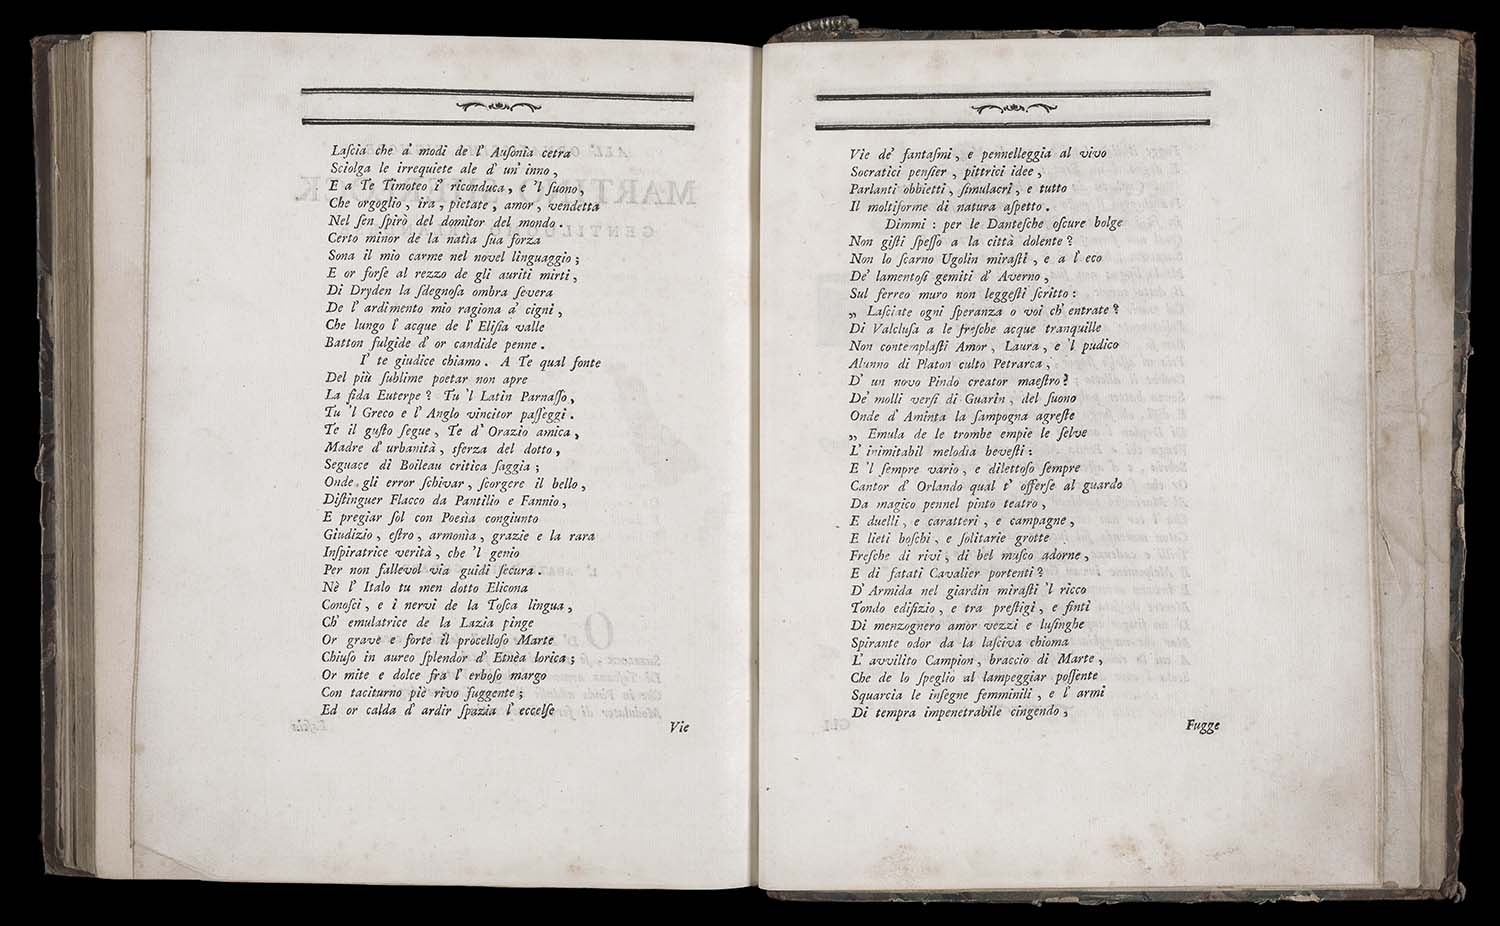 Laſcia che a' modi de l' Auſonia cetra
Sciolga le irrequiete ale d' un' inno,
E a Te Timoteo i' riconduca, e 'l ſuono,
Che orgoglio, ira, pietate, amor, vendetta
Nel ſen ſpirò del domitor del mondo.
Certo minor de la natìa ſua forza
Sona il mio carme nel novel linguaggio;
E or forſe al rezzo de gli auriti mirti,
Di Dryden la ſdegnoſa ombra ſevera
De l' ardimento mio ragiona a' cigni,
Che lungo l' acque de l' Eliſia valle
Batton fulgide d' or candide penne.
I' te giudice chiamo. A Te qual fonte
Del più ſublime poetar non apre
La fida Euterpe? Tu 'l Latin Parnaſſo,
Tu 'l Greco e l' Anglo vincitor paſſeggi.
Te il guſto ſegue, Te d' Orazio amica,
Madre d' urbanità, sferza del dotto,
Seguace di Boileau critica ſaggia;
Onde gli error ſchivar, ſcorgere il bello,
Diſtinguer Flacco da Pantilio e Fannio,
E pregiar ſol con Poesìa congiunto
Giudizio, eſtro, armonìa, grazie e la rara
Inſpiratrice verità, che 'l genio
Per non fallevol via guidi ſecura.
Nè l' Italo tu men dotto Elicona
Conoſci, e i nervi de la Toſca lingua,
Ch' emulatrice de la Lazia pinge
Or grave e forte il procelloſo Marte
Chiuſo in aureo ſplendor d' Etnèa lorica;
Or mite e dolce fra l' erboſo margo
Con taciturno piè rivo fuggente;
Ed or calda d' ardir ſpazia l' eccelſe
Vie
Vie de' fantaſmi, e pennelleggia al vivo
Socratici penſier, pittrici idee,
Parlanti obbietti, ſimulacri, e tutto
Il moltiforme di natura aſpetto.
Dimmi: per le Danteſche oſcure bolge
Non giſti ſpeſſo a la città dolente?
Non lo ſcarno Ugolin miraſti, e a l' eco
De' lamentoſi gemiti d' Averno,
Sul ferreo muro non leggeſti ſcritto:
„ Laſciate ogni ſperanza o voi ch' entrate?
Di Valcluſa a le freſche acque tranquille
Non contemplaſti Amor, Laura, e 'l pudico
Alunno di Platon culto Petrarca,
D' un novo Pindo creator maeſtro?
De' molli verſi di Guarin, del ſuono
Onde d' Aminta la ſampogna agreſte
„ Emula de le trombe empie le ſelve
L' inimitabil melodìa beveſti:
E 'l ſempre vario, e dilettoſo ſempre
Cantor d' Orlando qual t' offerſe al guardo
Da magico pennel pinto teatro,
E duelli, e caratteri, e campagne,
E lieti boſchi, e ſolitarie grotte
Freſche di rivi, di bel muſco adorne,
E di fatati Cavalier portenti?
D' Armida nel giardin miraſti 'l ricco
Tondo edifizio, e tra preſtigi, e finti
Di menzognero amor vezzi e luſinghe
Spirante odor da la laſciva chioma
L' avvilito Campion, braccio di Marte,
Che de lo ſpeglio al lampeggiar poſſente
Squarcia le inſegne femminili, e l' armi
Di tempra impenetrabile cingendo,
Fugge